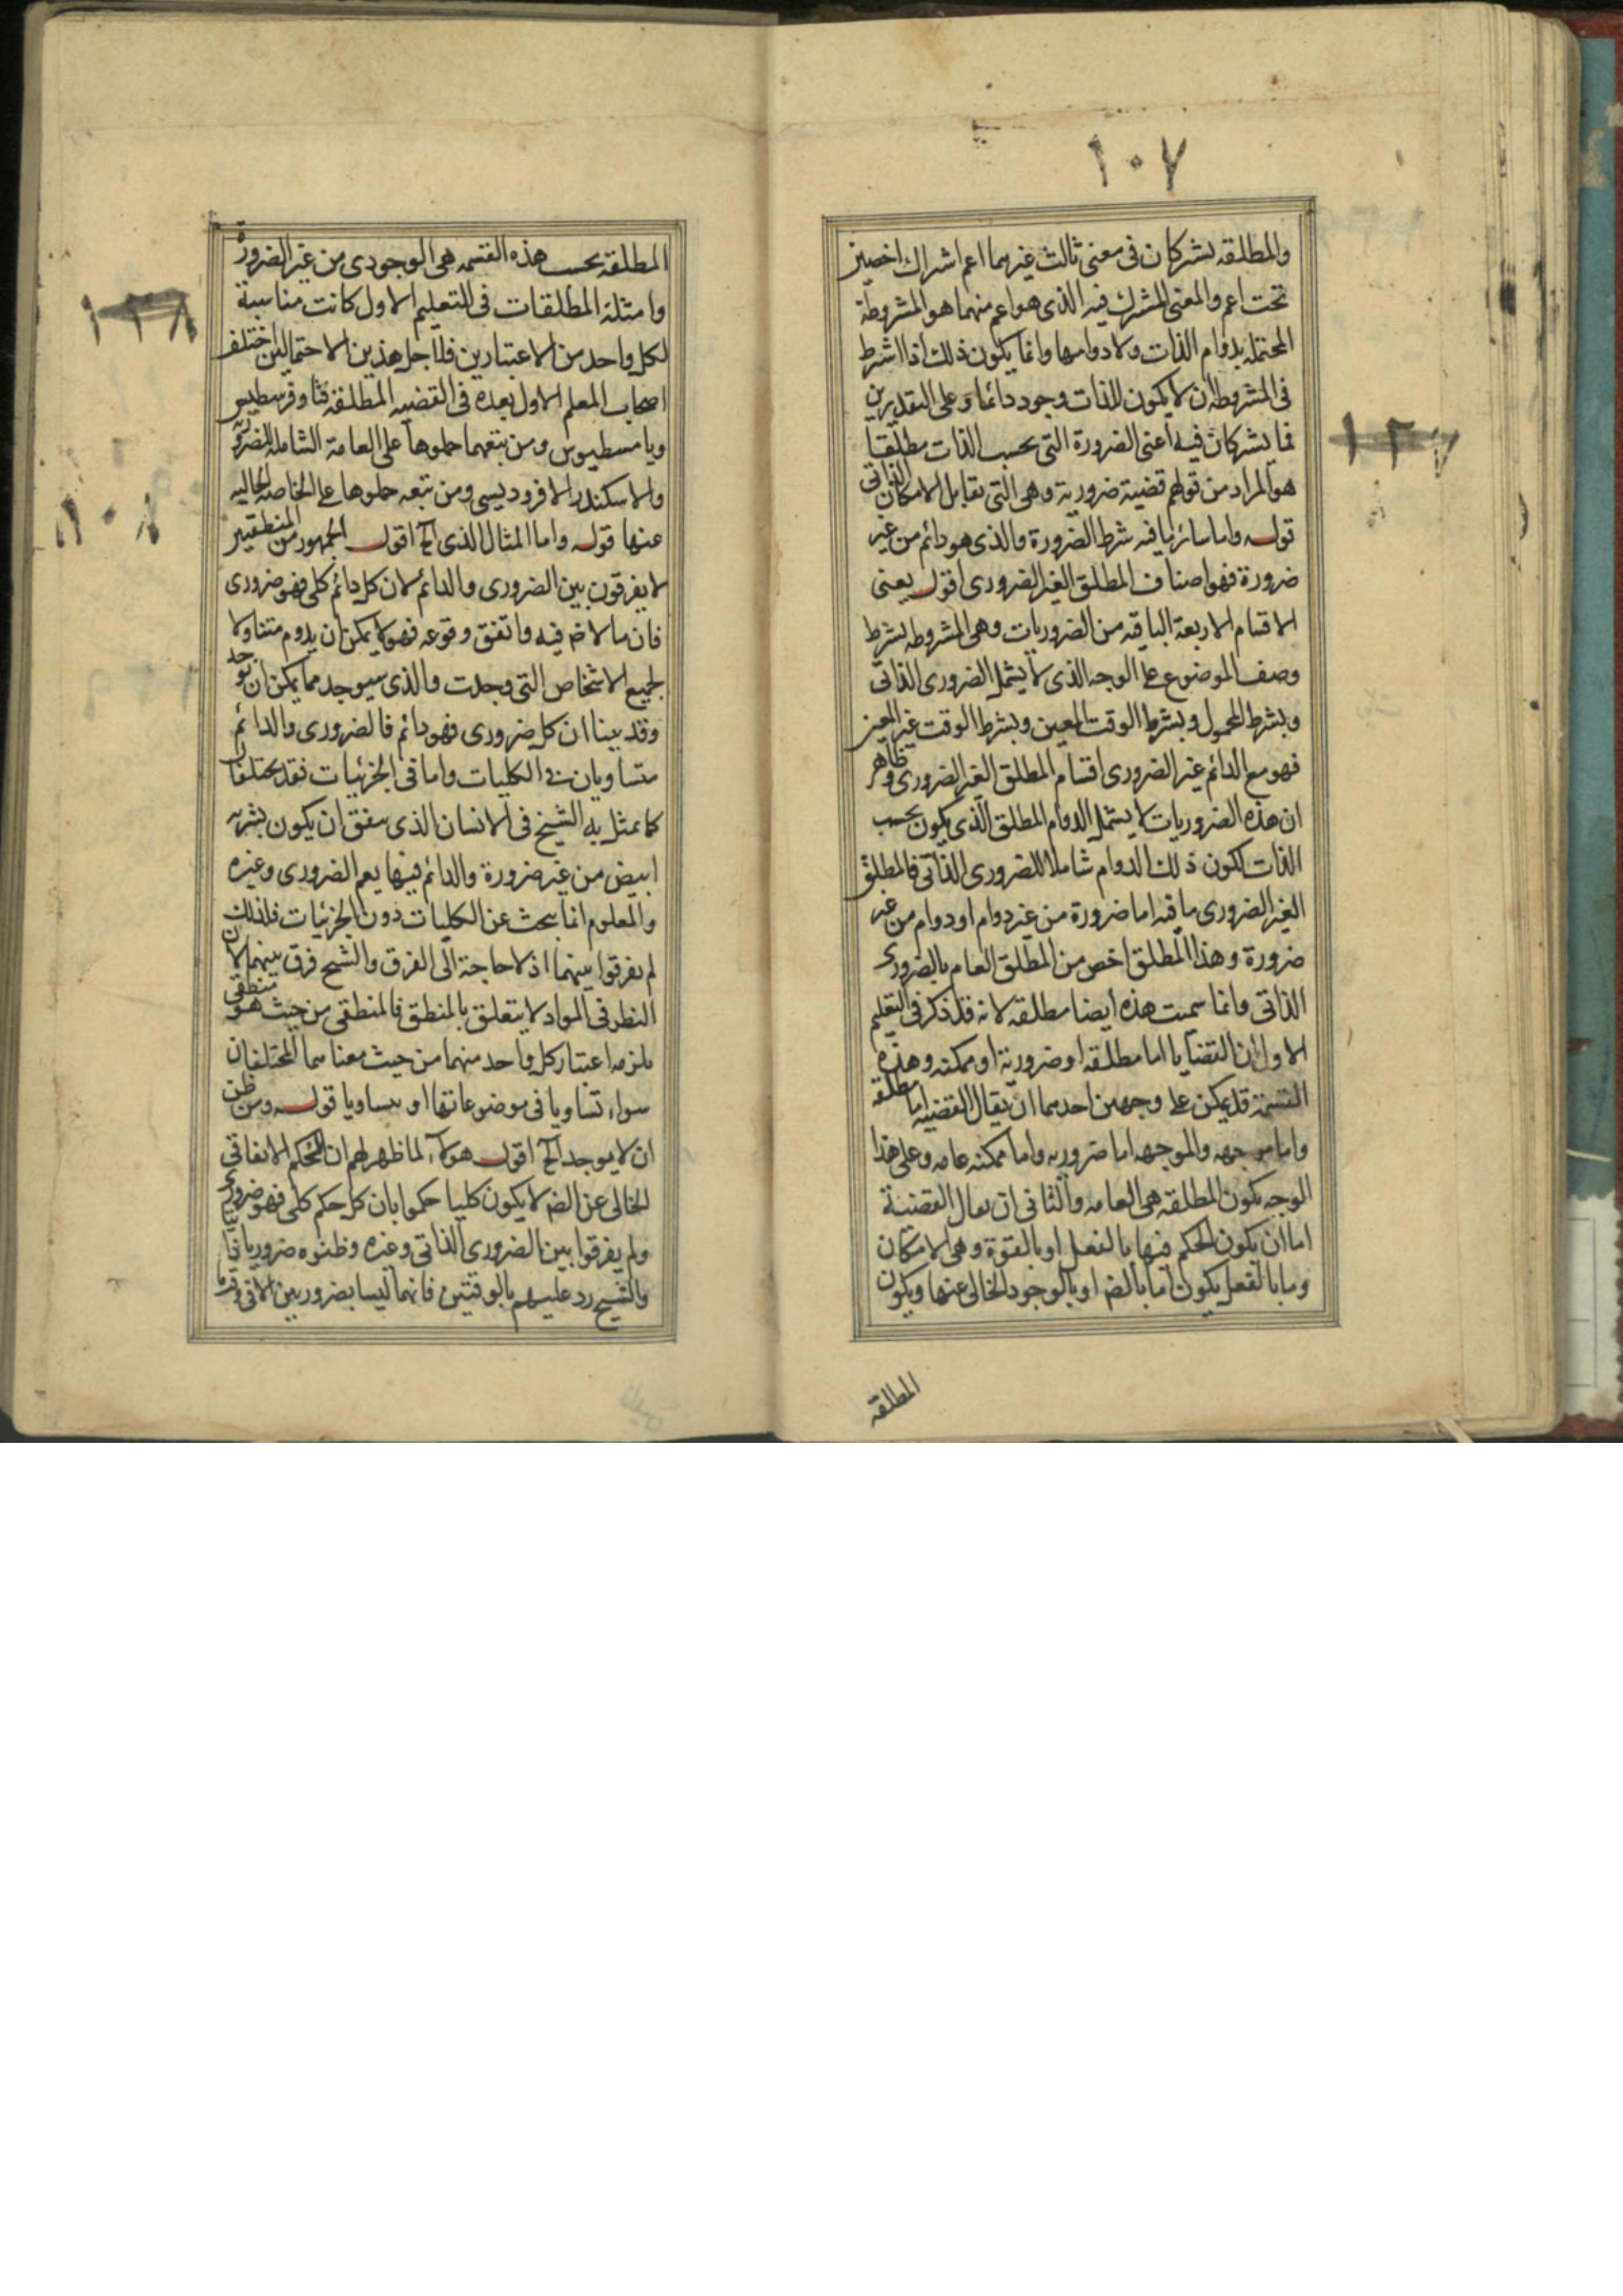 ١٠٧
والمطلقه يشتركان فى معنى ثالث غيرهما اعم اشتراك اخصين
تحت اعم والمعنى المشترك فيه الذى هو اعم منهما هو المشروطة
المحتمله بدوام الذات ولا دوامها وانما يكون ذلك اذا اشترط
فى المشروطه ان لا يكون للذات وجود دائما وعلى التقديرين
فما يشتركان فيه اعنى الضرورة التى بحسب الذات مطلقا
هو المراد من قولهم قضية ضرورية وهى التى تقابل الامكان الذاتى
قوله واما سائر ما فيه شرط الضرورة والذى هو دائم من غير
ضرورة فهو اصناف المطلق الغير الضرورى اقول يعنى
الاقسام الاربعة الباقيه من الضروريات وهى المشروطه بشرط
وصف الموضوع على الوجه الذى لا يشمل الضرورى الذاتى
وبشرط المحمول وبشرط الوقت المعين وبشرط الوقت غير المعين
فهو مع الدائم غير الضرورى اقسام المطلق الغير الضرورى وظاهر
ان هذه الضروريات لا يشمل الدوام المطلق الذى يكون بحسب
الذات لكون ذلك الدوام شاملا للضرورى الذاتى فالمطلق
الغير الضرورى ما فيه اما ضرورة من غير دوام او دوام من غير
ضرورة وهذا المطلق اخص من المطلق العام بالضرورى
الذاتى وانما سميت هذه ايضا مطلقه لانه قد ذكر فى التعليم
الاول ان القضايا اما مطلقه او ضرورية او ممكنه وهذه
القسمة قد يمكن على وجهين احدهما ان يقال القضيه اما مطلقه
واما موجهه والموجهه اما ضروريه واما ممكنه عامه وعلى هذا
الوجه يكون المطلقه هى العامه والثانى ان يقال القضية
اما ان يكون الحكم فيها بالفعل او بالقوة وهى الامكان
وما بالفعل يكون اما بالضر او بالوجود الخالى عنها ويكون
المطلقه
١٣٧
المطلقه بحسب هذه القسمه هى الوجودى من غير الضرورة
وامثلة المطلقات فى التعليم الاول كانت مناسبة
لكل واحد من الاعتبارين فلاجل هذين الاحتمالين اختلف
اصحاب المعلم الاول بعده فى القضيه المطلقه فثاوفرسطيس
وثامسطيوس ومن يتبعهما حملوها على العامة الشاملة للضرورة
والاسكندر الافروديسى ومن تبعه حملوها على الخاصه الخاليه
عنها قوله واما المثال الذى الخ اقول الجمهور من المنطقيين
لا يفرقون بين الضرورى والدائم لان كل دائم كلى فهو ضرورى
فان ما لا ضر فيه واتفق وقوعه فهو لا يمكن ان يدوم متناولا
لجميع الاشخاص التى وجدت والذى سيوجد مما يمكن ان يوجد
وقد بينا ان كل ضرورى فهو دائم فالضرورى والدائم
متساويان فى الكليات واما فى الجزئيات فقد يختلفان
كما تمثل به الشيخ فى الانسان الذى يتفق ان يكون بشرته
ابيض من غير ضرورة والدائم فيها يعم الضرورى وغيره
والمعلوم انما يبحث عن الكليات دون الجزئيات فلذلك
لم يفرقوا بينهما اذ لا حاجة الى الفرق والشيخ فرق بينهما لان
النظر فى المواد لا يتعلق بالمنطق فالمنطقى من حيث هو منطقى
يلزمه اعتبار كل واحد منهما من حيث معناهما المختلفان
سواء تساويا فى موضوعاتها او لم يتساويا قوله ومن ظن
ان لا يوجد الخ اقول هولاء لما ظهر لهم ان الحكم الاتفاقى
الخالى عن الضر لا يكون كليا حكموا بان كل حكم كلى فهو ضرورى
ولم يفرقوا بين الضرورى الذاتى وغيره وظنوه ضروريا ذاتيا
والشيخ رد عليهم بالوقتيتين فانهما ليسا بضروريين الا فى وقت ما
١٣٨
١٠٨